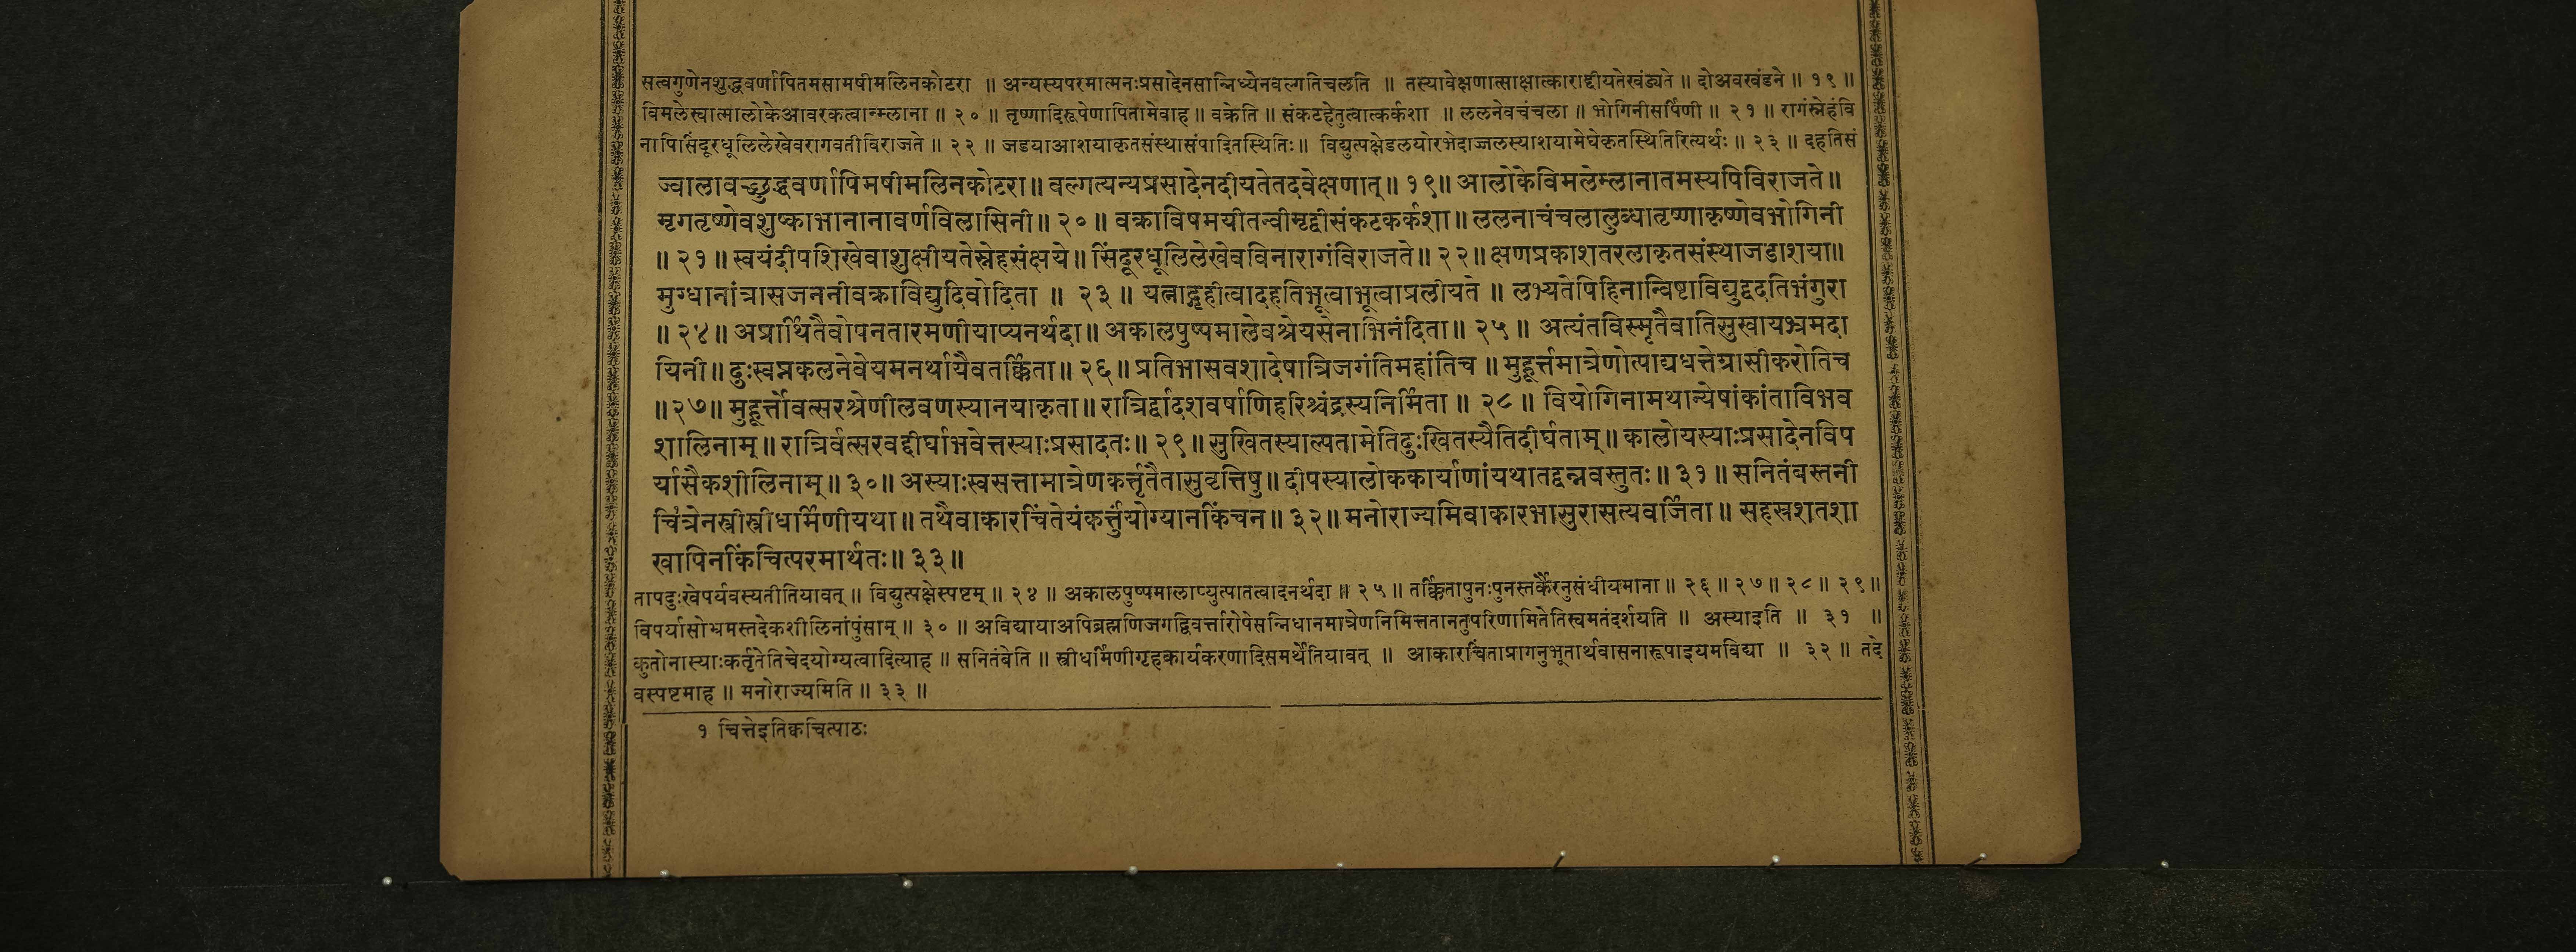 सत्वगुणेनशुद्धवर्णापितमसामषीमलिनकोटरा ॥ अन्यस्यपरमात्मनःप्रसादेनसान्निध्येनवल्गतिचलति ॥ तस्यावेक्षणात्साक्षात्काराद्दीयतेखंड्यते ॥ दोअवखंडने ॥ १९ ॥
विमलेस्वात्मालोकेआवरकत्वान्म्लाना ॥ २० ॥ तृष्णादिरूपेणापितामेवाह ॥ वक्रेति ॥ संकटहेतुत्वात्कर्कशा ॥ ललनेवचंचला ॥ भोगिनीसर्पिणी ॥ २१ ॥ रागंस्नेहंवि
नापिसिंदूरधूलिलेखेवरागवतीविराजते ॥ २२ ॥ जडयाआशयाकृतसंस्थासंपादितस्थितिः ॥ विद्युत्पक्षेडलयोरभेदाज्जलस्याशयामेघेकृतस्थितिरित्यर्थः ॥ २३ ॥ दहतिसं
ज्वालावच्छुद्धवर्णापिमषीमलिनकोटरा ॥ वल्गत्यन्यप्रसादेनदीयतेतदवेक्षणात् ॥ १९ ॥ आलोकेविमलेम्लानातमस्यपिविराजते ॥
मृगतृष्णेवशुष्काभानानावर्णविलासिनी ॥ २० ॥ वक्राविषमयीतन्वीमृद्वीसंकटकर्कशा ॥ ललनाचंचलालुब्धातृष्णाकृष्णेवभोगिनी
॥ २१ ॥ स्वयंदीपशिखेवाशुक्षीयतेस्नेहसंक्षये ॥ सिंदूरधूलिलेखेवविनारागंविराजते ॥ २२ ॥ क्षणप्रकाशतरलाकृतसंस्थाजडाशया ॥
मुग्धानांत्रासजननीवक्राविद्युदिवोदिता ॥ २३ ॥ यत्नाद्गृहीत्वादहतिभूत्वाभूत्वाप्रलीयते ॥ लभ्यतेपिहिनान्विष्टाविद्युद्वदतिभंगुरा
॥ २४ ॥ अप्रार्थितैवोपनतारमणीयाप्यनर्थदा ॥ अकालपुष्पमालेवश्रेयसेनाभिनंदिता ॥ २५ ॥ अत्यंतविस्मृतैवातिसुखायभ्रमदा
यिनी ॥ दुःस्वप्नकलनेवेयमनर्थायैवतर्क्किता ॥ २६ ॥ प्रतिभासवशादेषात्रिजगंतिमहांतिच ॥ मुहूर्त्तमात्रेणोत्पाद्यधत्तेग्रासीकरोतिच
॥ २७ ॥ मुहूर्त्तोवत्सरश्रेणीलवणस्यानयाकृता ॥ रात्रिर्द्वादशवर्षाणिहरिश्चंद्रस्यनिर्मिता ॥ २८ ॥ वियोगिनामथान्येषांकांताविभव
शालिनाम् ॥ रात्रिर्वत्सरवद्दीर्घाभवेत्तस्याःप्रसादतः ॥ २९ ॥ सुखितस्याल्पतामेतिदुःखितस्यैतिदीर्घताम् ॥ कालोयस्याःप्रसादेनविप
र्यासैकशीलिनाम् ॥ ३० ॥ अस्याःस्वसत्तामात्रेणकर्त्तृतैतासुवृत्तिषु ॥ दीपस्यालोककार्याणांयथातद्वन्नवस्तुतः ॥ ३१ ॥ सनितंबस्तनी
चित्रे१नस्त्रीस्त्रीधर्मिणीयथा ॥ तथैवाकारचिंतेयंकर्त्तुंयोग्यानकिंचन ॥ ३२ ॥ मनोराज्यमिवाकारभासुरासत्यवर्जिता ॥ सहस्रशतशा
खापिनकिंचित्परमार्थतः ॥ ३३ ॥
तापदुःखेपर्यवस्यतीतियावत् ॥ विद्युत्पक्षेस्पष्टम् ॥ २४ ॥ अकालपुष्पमालाप्युत्पातत्वादनर्थदा ॥ २५ ॥ तर्क्कितापुनःपुनस्तर्कैरनुसंधीयमाना ॥ २६ ॥ २७ ॥ २८ ॥ २९ ॥
विपर्यासोभ्रमस्तदेकशीलिनांपुंसाम् ॥ ३० ॥ अविद्यायाअपिब्रह्मणिजगद्विवर्त्तारोपेसन्निधानमात्रेणनिमित्ततानतुपरिणामितेतिस्वमतंदर्शयति ॥ अस्याइति ॥ ३१ ॥
कुतोनास्याःकर्तृतेतिचेदयोग्यत्वादित्याह ॥ सनितंबेति ॥ स्त्रीधर्मिणीगृहकार्यकरणादिसमर्थेतियावत् ॥ आकारचिंताप्रागनुभूतार्थवासनारूपाइयमविद्या ॥ ३२ ॥ तदे
वस्पष्टमाह ॥ मनोराज्यमिति ॥ ३३ ॥
१ चित्तेइतिक्वचित्पाठः